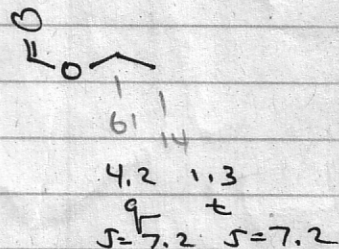 O
O
61 14
4.2 1.3
q t
J=7.2 J=7.2